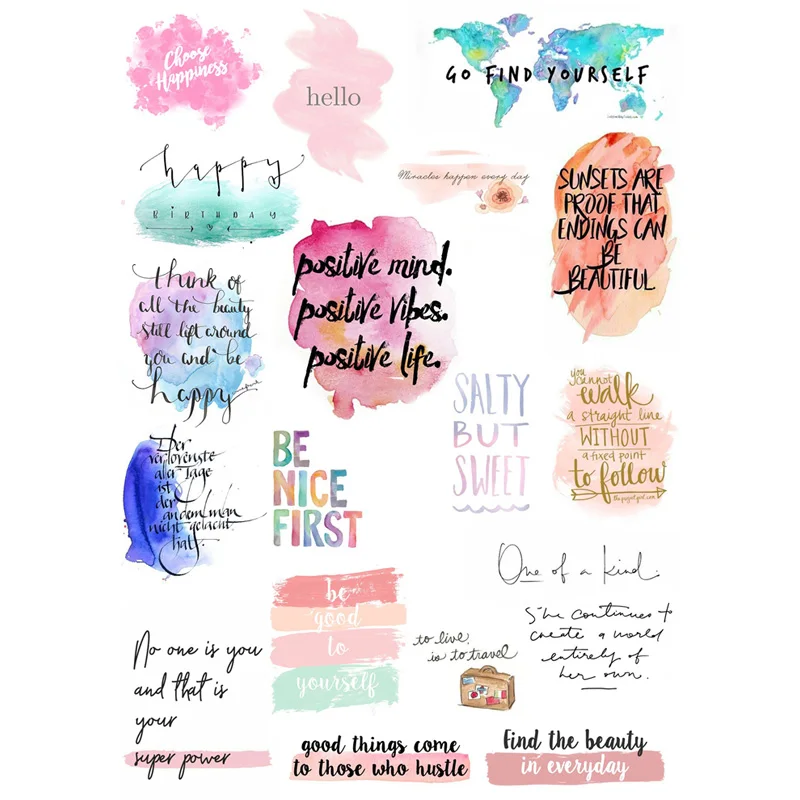 Choose
Happiness
hello
GO FIND YOURSELF
happy
BIRTHDAY
Miracles happen every day
SUNSETS ARE
PROOF THAT
ENDINGS CAN
BE
BEAUTIFUL
positive mind.
positive vibes.
positive life.
think of
all the beauty
still left around
you and be
happy
SALTY
BUT
SWEET
you
cannot
walk
a straight line
WITHOUT
a fixed point
to follow
Der
verlorenste
aller Tage
ist
der
an dem man
nicht gelacht
hat.
BE
NICE
FIRST
One of a kind.
be
good
to
yourself
to live
is to travel
She continues to
create a world
entirely of
her own.
No one is you
and that is
your
super power
good things come
to those who hustle
find the beauty
in everyday